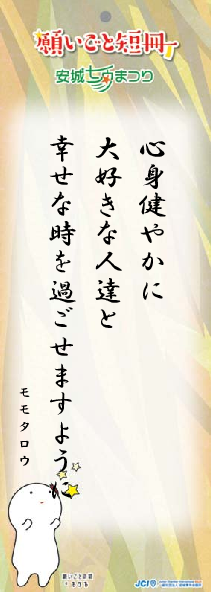 願いごと短冊
安城七夕まつり
心身健やかに
大好きな人達と
幸せな時を過ごせますように
モモタロウ
願いごと短冊
JCI